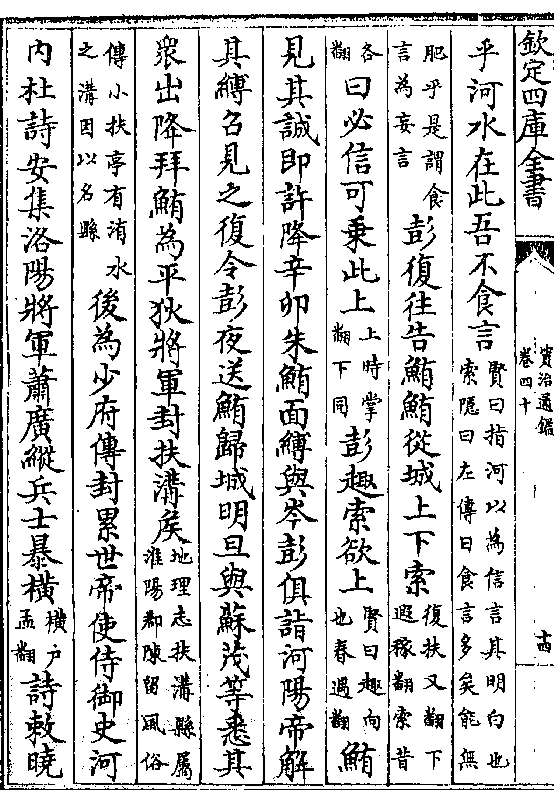 欽定四庫全書 資治通鑑 卷四十 十四
乎河水在此吾不食言賢曰指河以為信言其明白也索隱曰左傳曰食言多矣能無
肥乎是謂食言為妄言彭復往告鮪鮪從城上下索復扶又翻下遐稼翻索昔
各翻曰必信可乗此上上時掌翻下同彭趣索欲上賢曰趣向也春遇翻鮪
見其誠即許降辛卯朱鮪面縛與岑彭俱詣河陽帝解
其縛召見之復令彭夜送鮪歸城明旦與蘇茂等悉其
衆出降拜鮪為平狄將軍封扶溝侯地理志扶溝縣屬淮陽郡陳留風俗
傳小扶亭有洧水之溝因以名縣後為少府傳封累世帝使侍御史河
内杜詩安集洛陽將軍蕭廣縱兵士暴橫橫戶孟翻詩敕曉